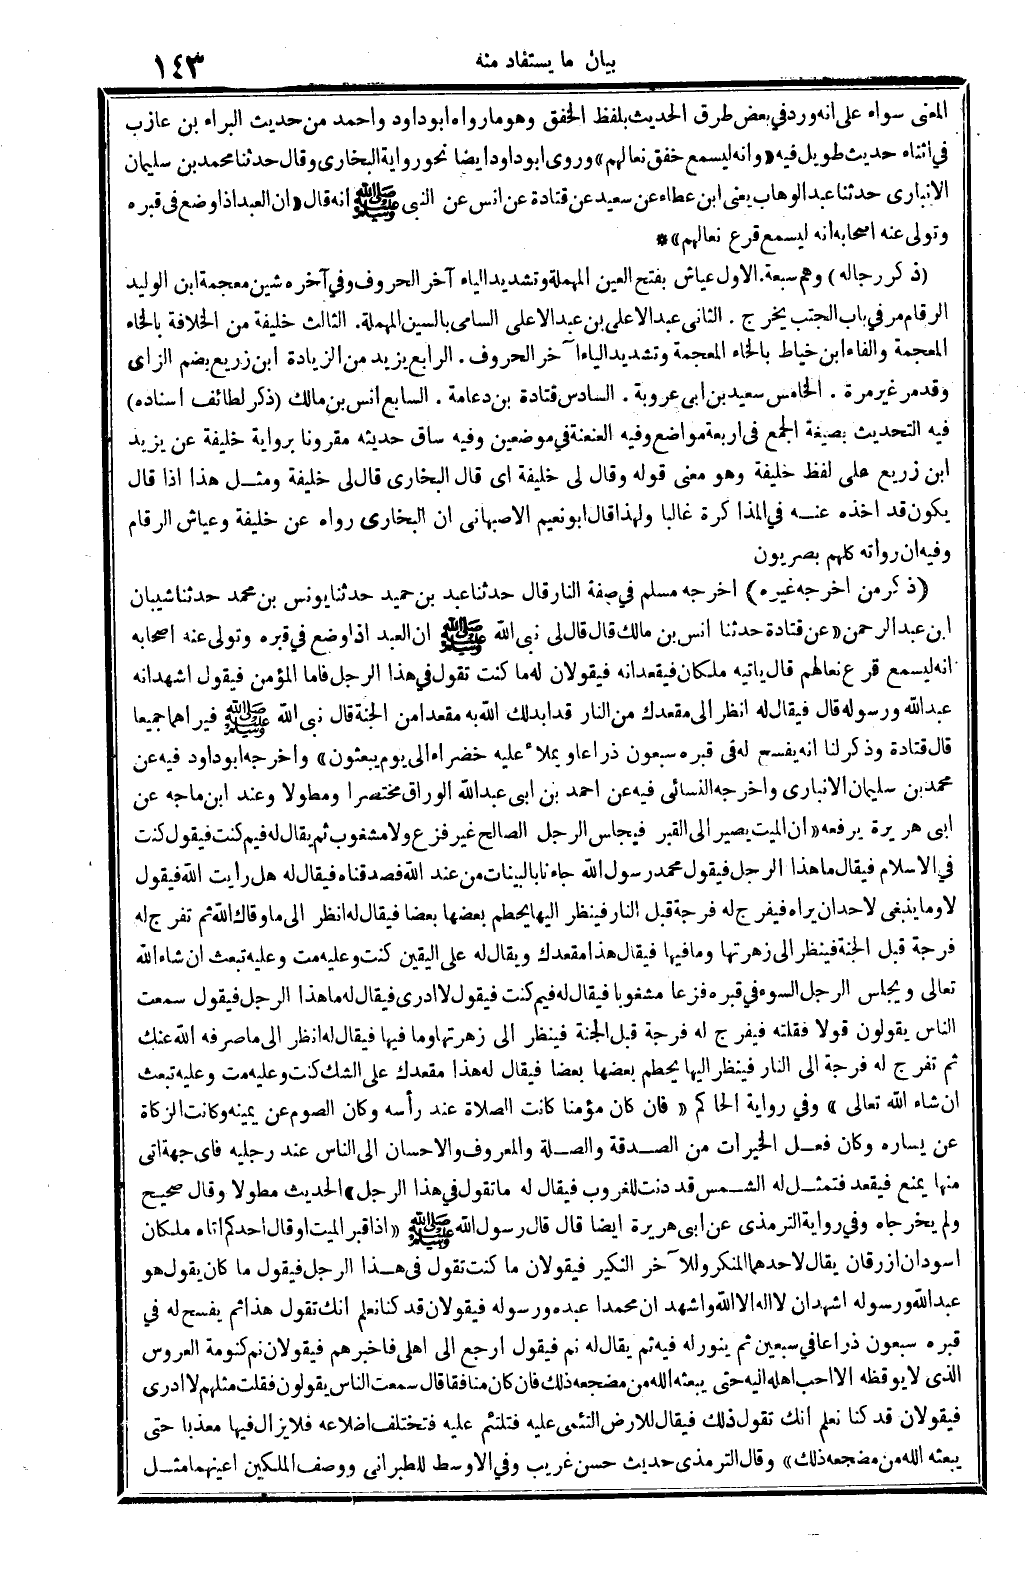 بيان ما يستفاد منه
١٤٣
المعنى سواء على انه ورد في بعض طرق الحديث بلفظ الخفق وهو ما رواه ابو داود واحمد من حديث البراء بن عازب
في اثناء حديث طويل فيه «وانه ليسمع خفق نعالهم» وروى ابو داود ايضا نحو رواية البخارى وقال حدثنا محمد بن سليمان
الانبارى حدثنا عبد الوهاب يعنى ابن عطاء عن سعيد عن قتادة عن انس عن النبى ﷺ انه قال «ان العبد اذا وضع في قبره
وتولى عنه اصحابه انه ليسمع قرع نعالهم»*
(ذكر رجاله) وهم سبعة. الاول عياش بفتح العين المهملة وتشديد الياء آخر الحروف وفي آخره شين معجمة ابن الوليد
الرقام مر في باب الجنب يخرج . الثانى عبد الاعلى بن عبد الاعلى السامى بالسين المهملة. الثالث خليفة من الخلافة بالخاء
المعجمة والفاء ابن خياط بالخاء المعجمة وتشديد الياء آخر الحروف . الرابع يزيد من الزيادة ابن زريع بضم الزاى
وقد مر غير مرة . الخامس سعيد بن ابى عروبة . السادس قتادة بن دعامة . السابع انس بن مالك (ذكر لطائف اسناده)
فيه التحديث بصيغة الجمع فى اربعة مواضع وفيه العنعنة في موضعين وفيه ساق حديثه مقرونا برواية خليفة عن يزيد
ابن زريع على لفظ خليفة وهو معنى قوله وقال لى خليفة اى قال البخارى قال لى خليفة ومثـل هذا اذا قال
يكون قد اخذه عنـه في المذاكرة غالبا ولهذا قال ابو نعيم الاصبهانى ان البخارى رواه عن خليفة وعياش الرقام
وفيه ان رواته كلهم بصريون
(ذكر من اخرجه غيره) اخرجه مسلم في صفة النار قال حدثنا عبد بن حميد حدثنا يونس بن محمد حدثنا شيبان
ابن عبد الرحمن «عن قتادة حدثنا انس بن مالك قال قال لى نبى الله ﷺ ان العبد اذا وضع في قبره وتولى عنه اصحابه
انه ليسمع قرع نعالهم قال ياتيه ملكان فيقعدانه فيقولان له ما كنت تقول في هذا الرجل فاما المؤمن فيقول اشهد انه
عبد الله ورسوله قال فيقال له انظر الى مقعدك من النار قد ابدلك الله به مقعدا من الجنة قال نبى الله ﷺ فيراهما جميعا
قال قتادة وذكر لنا انه يفسح له فى قبره سبعون ذراعا ويملاء عليه خضراء الى يوم يبعثون» واخرجه ابو داود فيه عن
محمد بن سليمان الانبارى واخرجه النسائى فيه عن احمد بن ابى عبد الله الوراق مختصرا ومطولا وعند ابن ماجه عن
ابى هريرة يرفعه «ان الميت يصير الى القبر فيجلس الرجل الصالح غير فزع ولا مشغوب ثم يقال له فيم كنت فيقول كنت
في الاسلام فيقال ما هذا الرجل فيقول محمد رسول الله جاءنا بالبينات من عند الله فصدقناه فيقال له هل رأيت الله فيقول
لا وما ينبغى لاحد ان يراه فيفرج له فرجة قبل النار فينظر اليها يحطم بعضها بعضا فيقال له انظر الى ما وقاك الله ثم تفرج له
فرجة قبل الجنة فينظر الى زهرتها وما فيها فيقال هذا مقعدك ويقال له على اليقين كنت وعليه مت وعليه تبعث ان شاء الله
تعالى ويجلس الرجل السوء في قبره فزعا مشغوبا فيقال له فيم كنت فيقول لا ادرى فيقال له ما هذا الرجل فيقول سمعت
الناس يقولون قولا فقلته فيفرج له فرجة قبل الجنة فينظر الى زهرتها وما فيها فيقال له انظر الى ما صرفه الله عنك
ثم تفرج له فرجة الى النار فينظر اليها يحطم بعضها بعضا فيقال له هذا مقعدك على الشك كنت وعليه مت وعليه تبعث
ان شاء الله تعالى » وفي رواية الحاكم « فان كان مؤمنا كانت الصلاة عند رأسه وكان الصوم عن يمينه وكانت الزكاة
عن يساره وكان فعـل الخيرات من الصـدقة والصـلة والمعروف والاحسان الى الناس عند رجليه فاى جهة اتى
منها يمنع فيقعد فتمثـل له الشـمس قد دنت للغروب فيقال له ما تقول في هذا الرجل» الحديث مطولا وقال صحيح
ولم يخرجاه وفي رواية الترمذى عن ابى هريرة ايضا قال قال رسول الله ﷺ «اذا قبر الميت او قال احدكم اتاه ملكان
اسودان ازرقان يقال لاحدهما المنكر وللآخر النكير فيقولان ما كنت تقول فى هـذا الرجل فيقول ما كان يقول هو
عبد الله ورسوله اشهد ان لا اله الا الله واشهد ان محمدا عبده ورسوله فيقولان قد كنا نعلم انك تقول هذا ثم يفسح له في
قبره سبعون ذراعا في سبعين ثم ينور له فيه ثم يقال له نم فيقول ارجع الى اهلى فاخبرهم فيقولان نم كنومة العروس
الذى لا يوقظه الا احب اهله اليه حتى يبعثه الله من مضجعه ذلك فان كان منافقا قال سمعت الناس يقولون فقلت مثلهم لا ادرى
فيقولان قد كنا نعلم انك تقول ذلك فيقال للارض التئمى عليه فتلتئم عليه فتختلف اضلاعه فلا يزال فيها معذبا حتى
يبعثه الله من مضجعه ذلك» وقال الترمذى حديث حسن غريب وفي الاوسط للطبرانى ووصف الملكين اعينهما مثـل